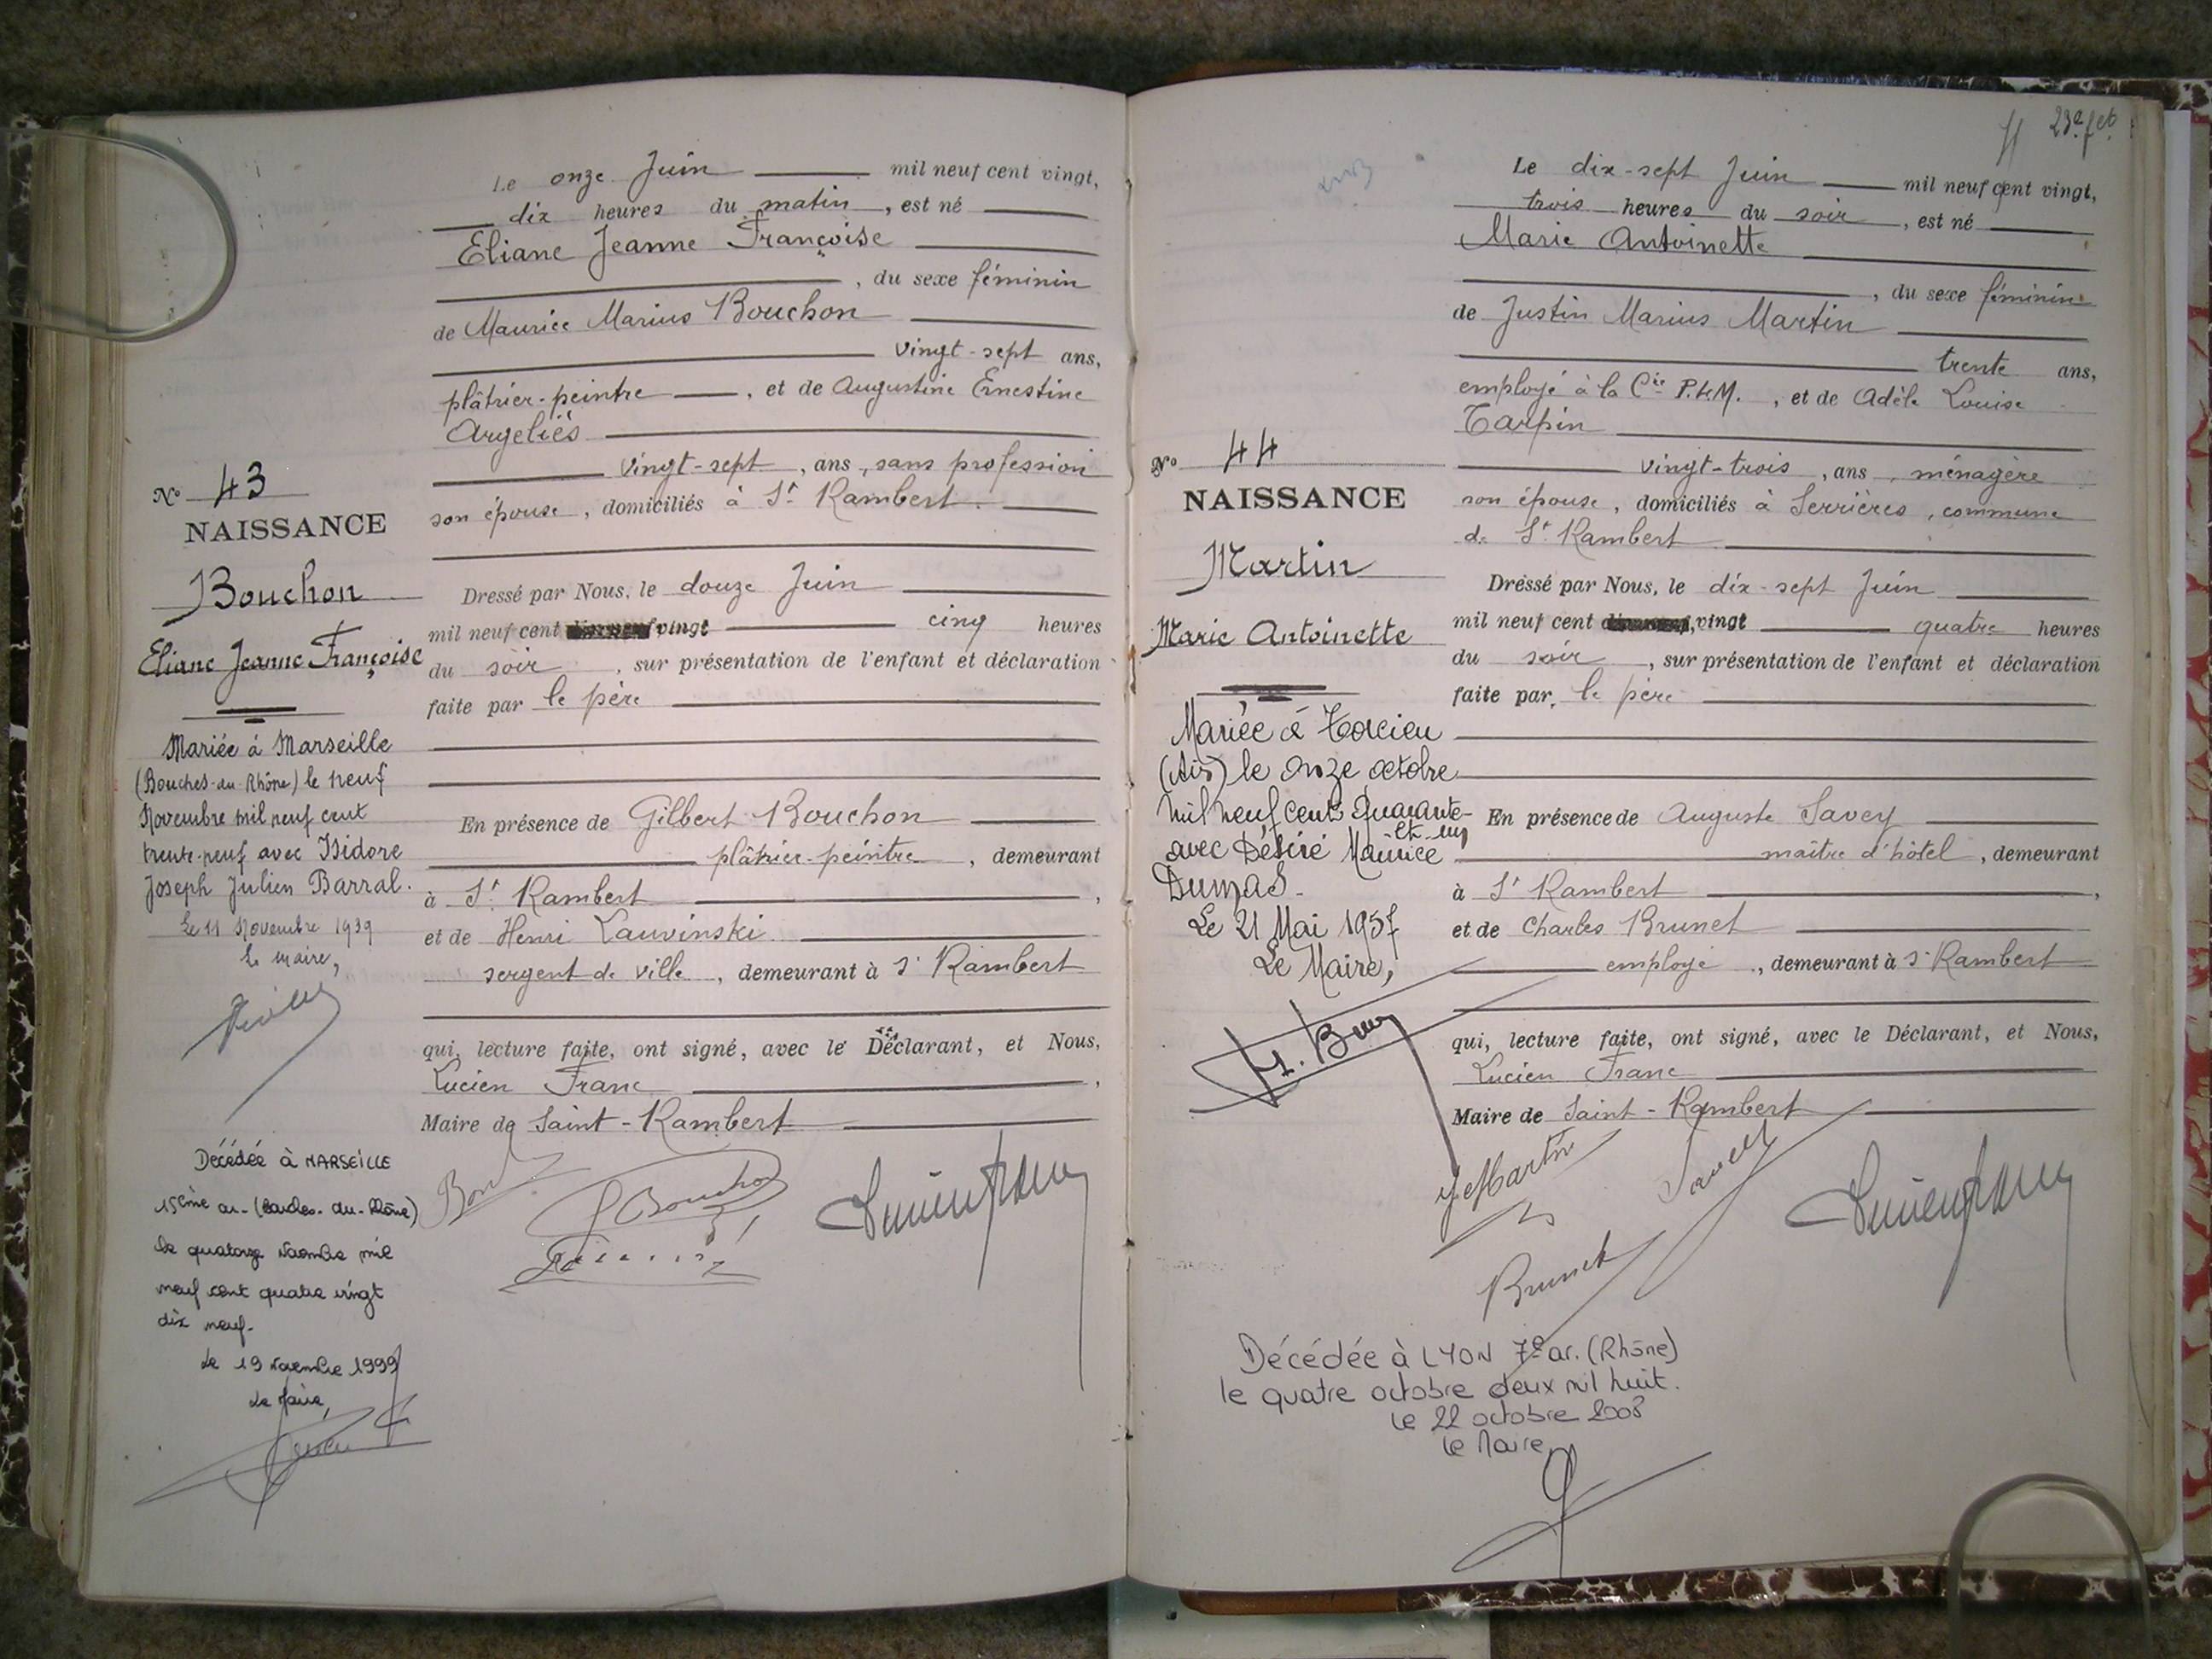 Le onze Juin mil neuf cent vingt,
dix heures du matin, est né
Eliane Jeanne Françoise
, du sexe féminin
de Maurice Marius Bouchon
vingt-sept ans,
plâtrier-peintre, et de Augustine Ernestine
Argeliès
vingt-sept, ans, sans profession
son épouse, domiciliés à St Rambert
Dressé par Nous, le douze Juin
mil neuf cent vingt cinq heures
du soir, sur présentation de l'enfant et déclaration
faite par le père
En présence de Gilbert Bouchon
plâtrier-peintre, demeurant
à St Rambert,
et de Henri Lauvinski
sergent de ville, demeurant à St Rambert
qui, lecture faite, ont signé, avec le Déclarant, et Nous,
Lucien Franc,
Maire de Saint-Rambert
Bouchon
Lucien Franc
No 43
NAISSANCE
Bouchon
Eliane Jeanne Françoise
Mariée à Marseille
(Bouches-du-Rhône) le neuf
Novembre mil neuf cent
trente-neuf avec Isidore
Joseph Julien Barral.
Le 11 Novembre 1939
Le maire,
Décédée à MARSEILLE
15ème ar. (Bouches-du-Rhône)
le quatorze novembre mil
neuf cent quatre vingt
dix neuf.
Le 19 novembre 1999
Le Maire,
23e fet
Le dix-sept Juin mil neuf cent vingt,
trois heures du soir, est né
Marie Antoinette
, du sexe féminin
de Justin Marius Martin
trente ans,
employé à la Cie P.L.M., et de Adèle Louise
Tarpin
vingt-trois, ans, ménagère
son épouse, domiciliés à Serrières, commune
de St Rambert
Dressé par Nous, le dix-sept Juin
mil neuf cent vingt quatre heures
du soir, sur présentation de l'enfant et déclaration
faite par, le père
En présence de Auguste Savey
maître d'hôtel, demeurant
à St Rambert,
et de Charles Brunet
employé, demeurant à St Rambert
qui, lecture faite, ont signé, avec le Déclarant, et Nous,
Lucien Franc
Maire de Saint-Rambert
J Martin
Savey
Brunet
Lucien Franc
No 44
NAISSANCE
Martin
Marie Antoinette
Mariée à Torcieu
(Ain) le onze octobre
mil neuf cent quarante-
et-un
avec Désiré Maurice
Dumas.
Le 21 Mai 1957
Le Maire,
Décédée à LYON 7e ar. (Rhône)
le quatre octobre deux mil huit.
le 22 octobre 2008
le Maire,